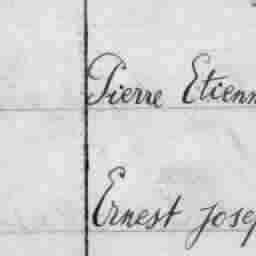 Pierre Etienn
Ernest Josep